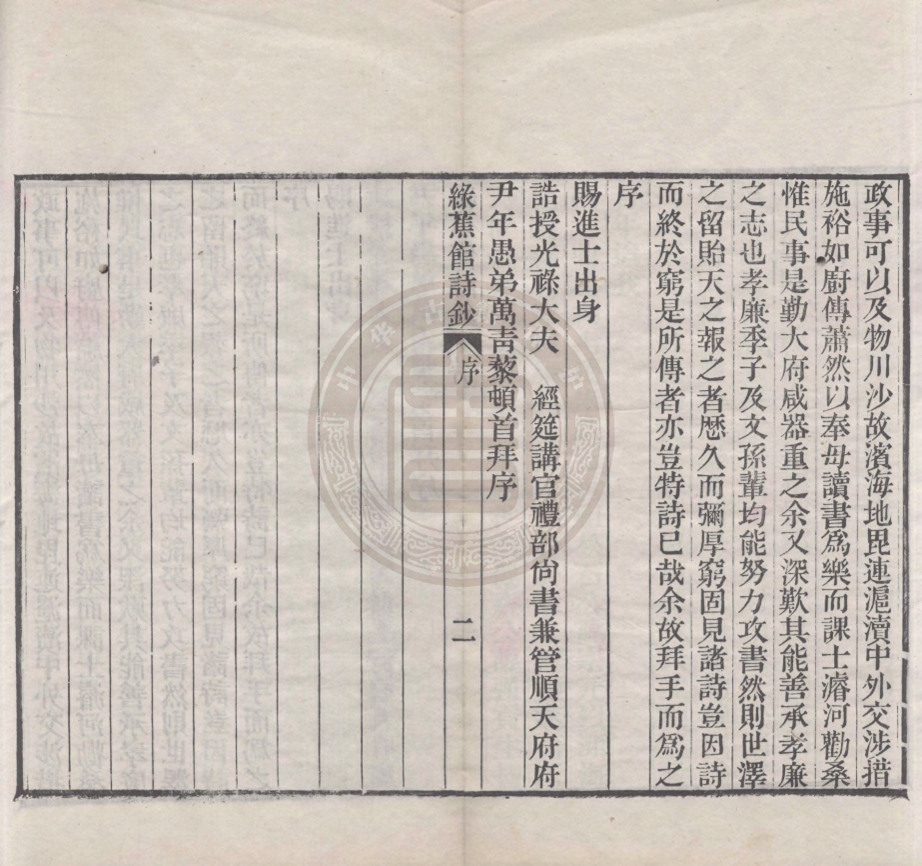 政事可以及物川沙故濱海地毘連滬瀆中外交涉措
施裕如廚傳蕭然以奉母讀書爲樂而課士濬河勸桑
惟民事是勤大府咸器重之余又深歎其能善承孝廉
之志也孝廉季子及文孫輩均能努力攻書然則世澤
之留貽天之報之者歷久而彌厚窮固見諸詩豈因詩
而終於窮是所傳者亦豈特詩已哉余故拜手而爲之
序
賜進士出身
誥授光祿大夫 經筵講官禮部尚書兼管順天府府
尹年愚弟萬靑藜頓首拜序
綠蕉館詩鈔 序 二